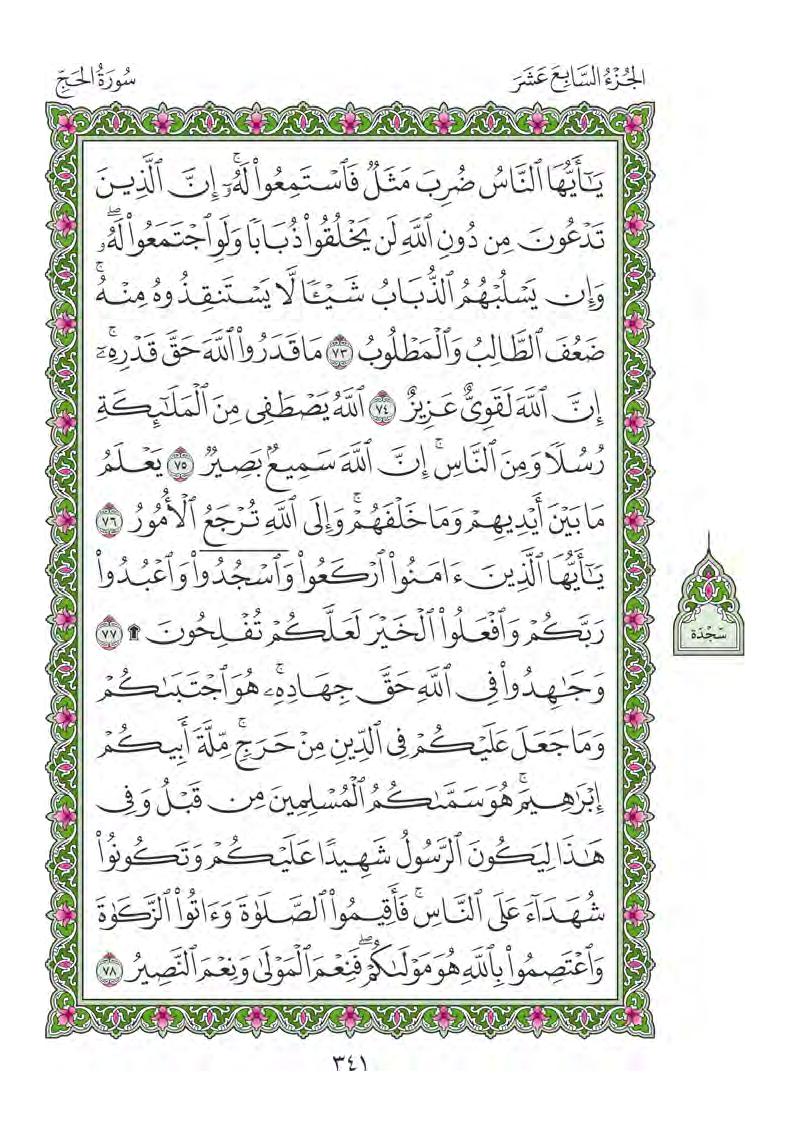 الجُزْءُ السَّابِعَ عَشَرَ
سُورَةُ الحَجِّ
يَـٰٓأَيُّهَا ٱلنَّاسُ ضُرِبَ مَثَلٌ فَٱسْتَمِعُوا۟ لَهُۥٓ ۚ إِنَّ ٱلَّذِينَ
تَدْعُونَ مِن دُونِ ٱللَّهِ لَن يَخْلُقُوا۟ ذُبَابًا وَلَوِ ٱجْتَمَعُوا۟ لَهُۥ ۖ
وَإِن يَسْلُبْهُمُ ٱلذُّبَابُ شَيْـًٔا لَّا يَسْتَنقِذُوهُ مِنْهُ ۚ
ضَعُفَ ٱلطَّالِبُ وَٱلْمَطْلُوبُ ٧٣ مَا قَدَرُوا۟ ٱللَّهَ حَقَّ قَدْرِهِۦٓ ۚ
إِنَّ ٱللَّهَ لَقَوِىٌّ عَزِيزٌ ٧٤ ٱللَّهُ يَصْطَفِى مِنَ ٱلْمَلَـٰٓئِكَةِ
رُسُلًا وَمِنَ ٱلنَّاسِ ۚ إِنَّ ٱللَّهَ سَمِيعٌۢ بَصِيرٌ ٧٥ يَعْلَمُ
مَا بَيْنَ أَيْدِيهِمْ وَمَا خَلْفَهُمْ ۗ وَإِلَى ٱللَّهِ تُرْجَعُ ٱلْأُمُورُ ٧٦
يَـٰٓأَيُّهَا ٱلَّذِينَ ءَامَنُوا۟ ٱرْكَعُوا۟ وَٱسْجُدُوا۟ وَٱعْبُدُوا۟
رَبَّكُمْ وَٱفْعَلُوا۟ ٱلْخَيْرَ لَعَلَّكُمْ تُفْلِحُونَ ۩ ٧٧
سَجْدَة
وَجَـٰهِدُوا۟ فِى ٱللَّهِ حَقَّ جِهَادِهِۦ ۚ هُوَ ٱجْتَبَىٰكُمْ
وَمَا جَعَلَ عَلَيْكُمْ فِى ٱلدِّينِ مِنْ حَرَجٍ ۚ مِّلَّةَ أَبِيكُمْ
إِبْرَٰهِيمَ ۚ هُوَ سَمَّىٰكُمُ ٱلْمُسْلِمِينَ مِن قَبْلُ وَفِى
هَـٰذَا لِيَكُونَ ٱلرَّسُولُ شَهِيدًا عَلَيْكُمْ وَتَكُونُوا۟
شُهَدَآءَ عَلَى ٱلنَّاسِ ۚ فَأَقِيمُوا۟ ٱلصَّلَوٰةَ وَءَاتُوا۟ ٱلزَّكَوٰةَ
وَٱعْتَصِمُوا۟ بِٱللَّهِ هُوَ مَوْلَىٰكُمْ ۖ فَنِعْمَ ٱلْمَوْلَىٰ وَنِعْمَ ٱلنَّصِيرُ ٧٨
٣٤١